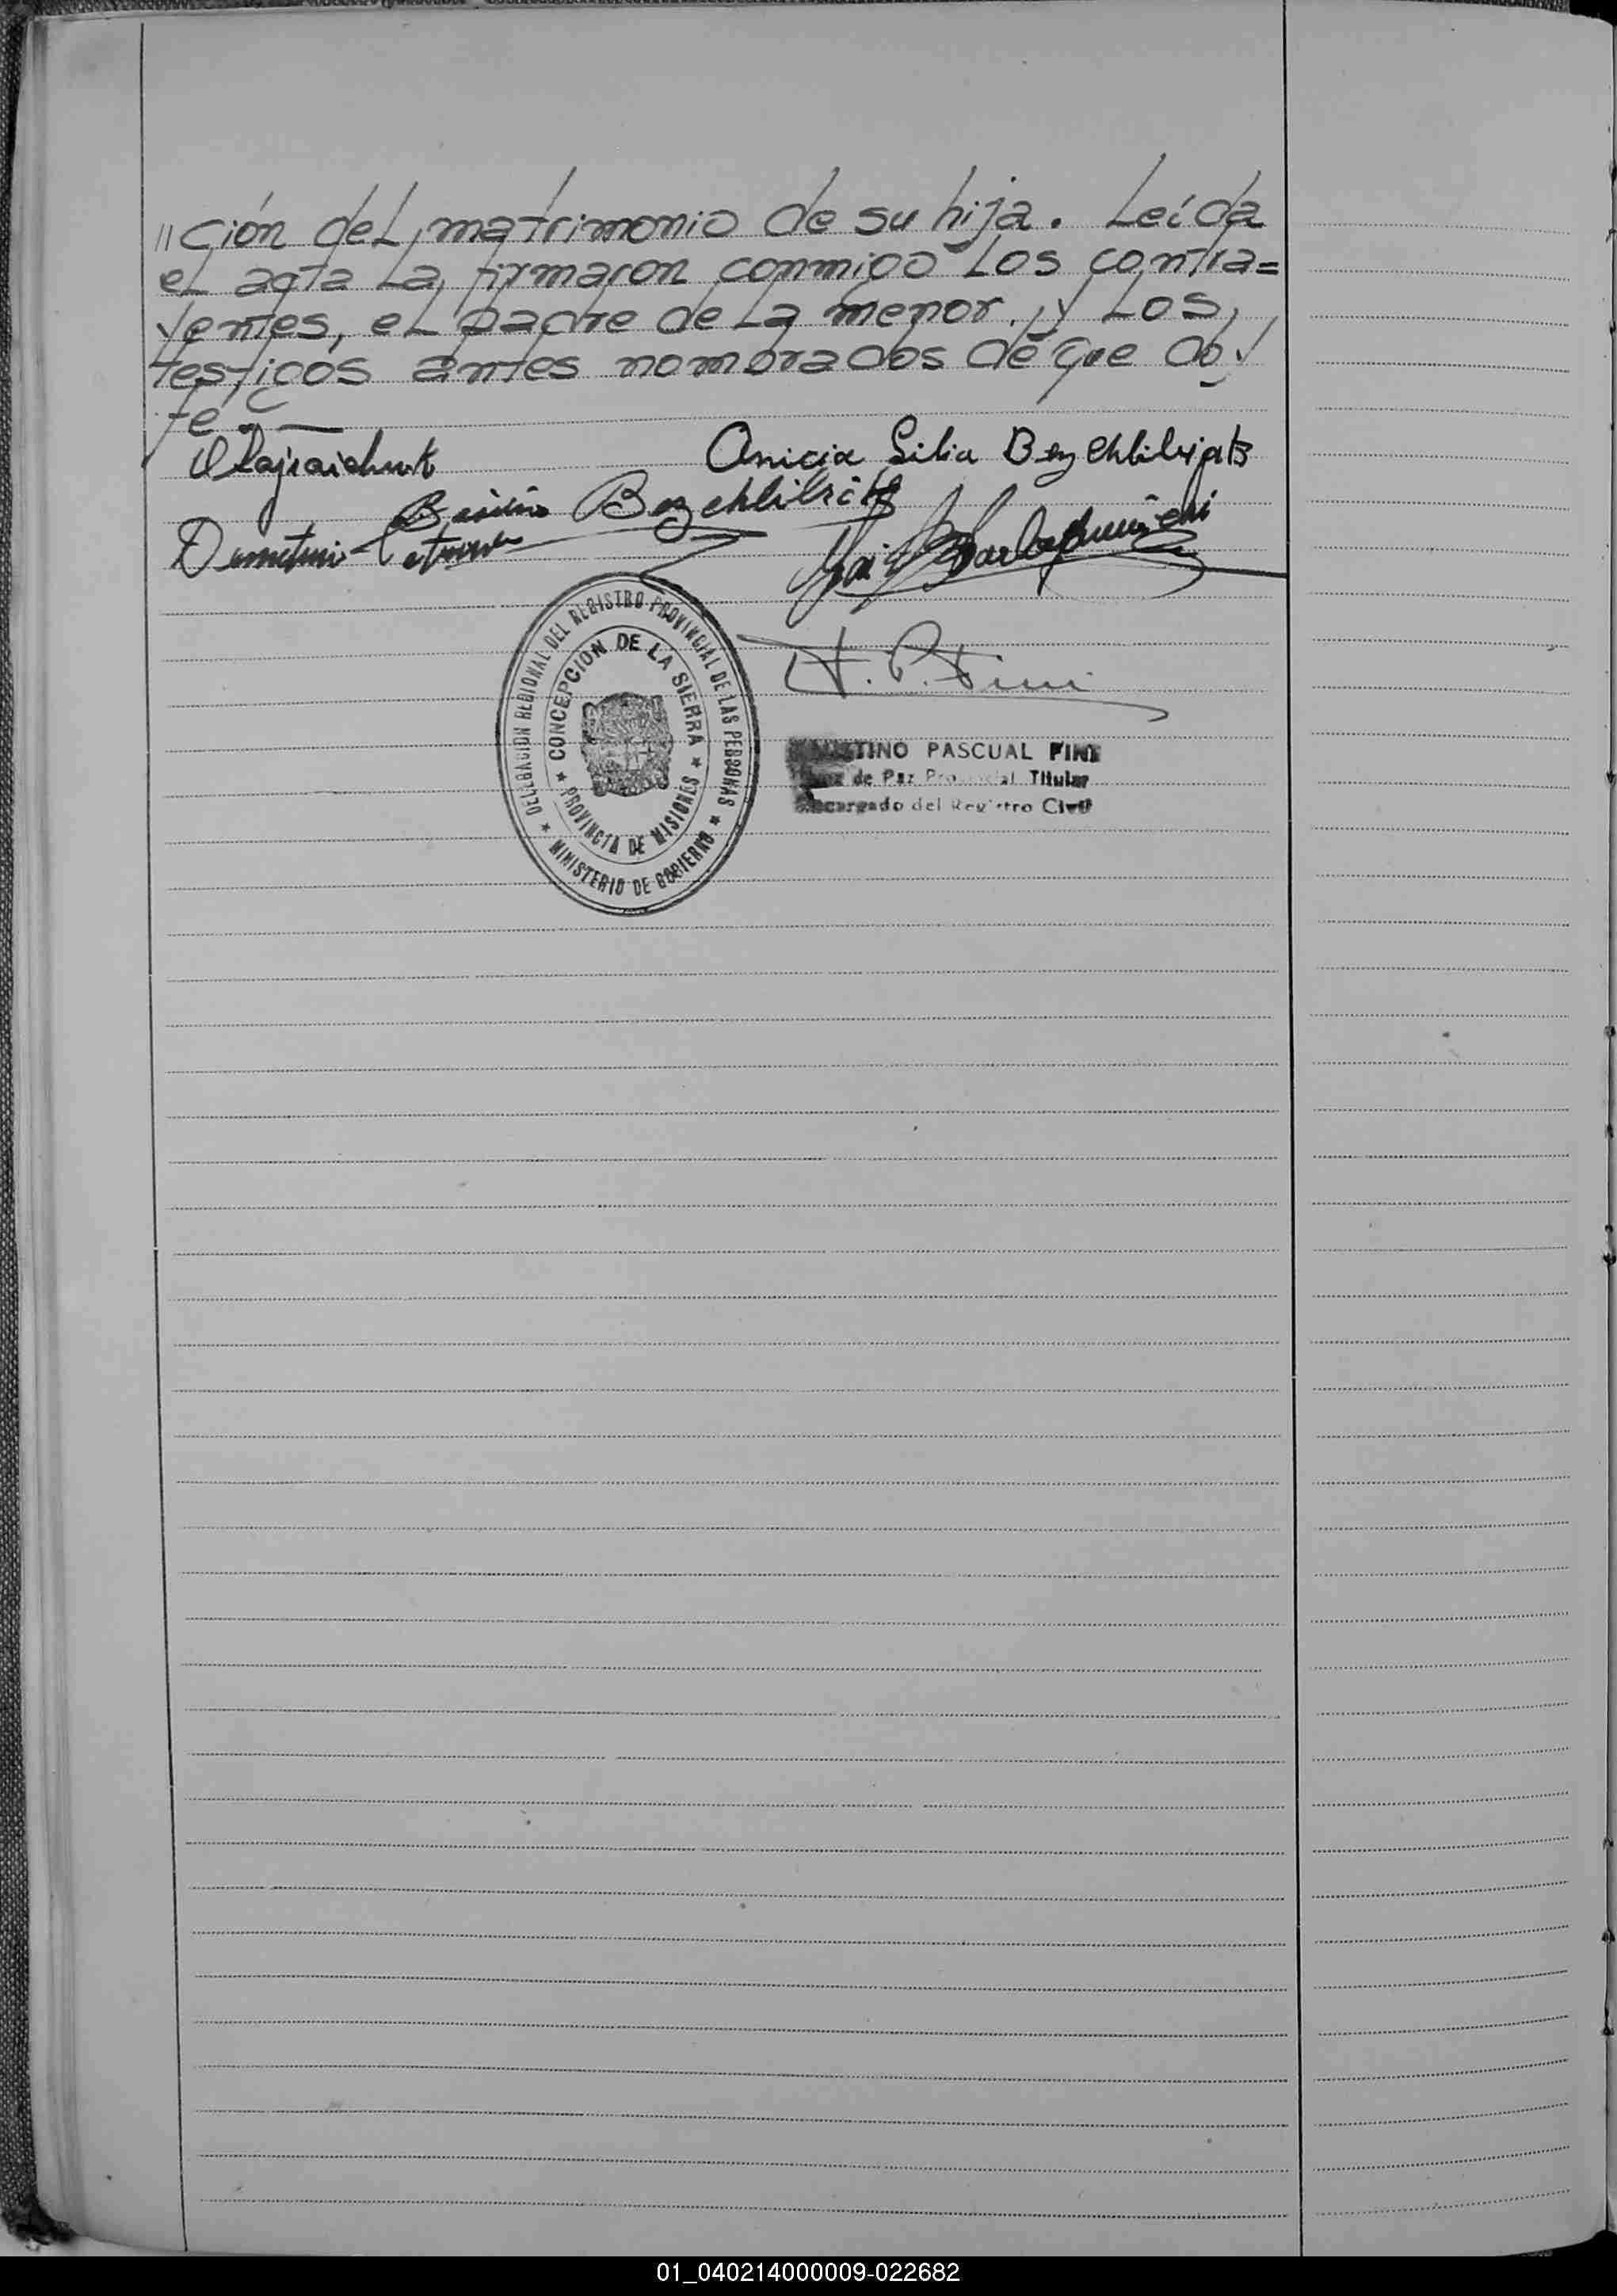 "ción del matrimonio de su hija. Leída
el acta la firmaron conmigo los contra=
yentes, el padre de la menor, y los
testigos antes nombrados de que doy
fe.—
Anicia Silia Bezchlibijats
Basilio Bezchlibi
Demetrio
F. P. Fini
DELEGACION REGIONAL DEL REGISTRO PROVINCIAL DE LAS PERSONAS
★ MINISTERIO DE GOBIERNO ★
CONCEPCION DE LA SIERRA
★ PROVINCIA DE MISIONES ★
PASCUAL FINI
de Paz Provincial Titular
Encargado del Registro Civil
01_040214000009-022682